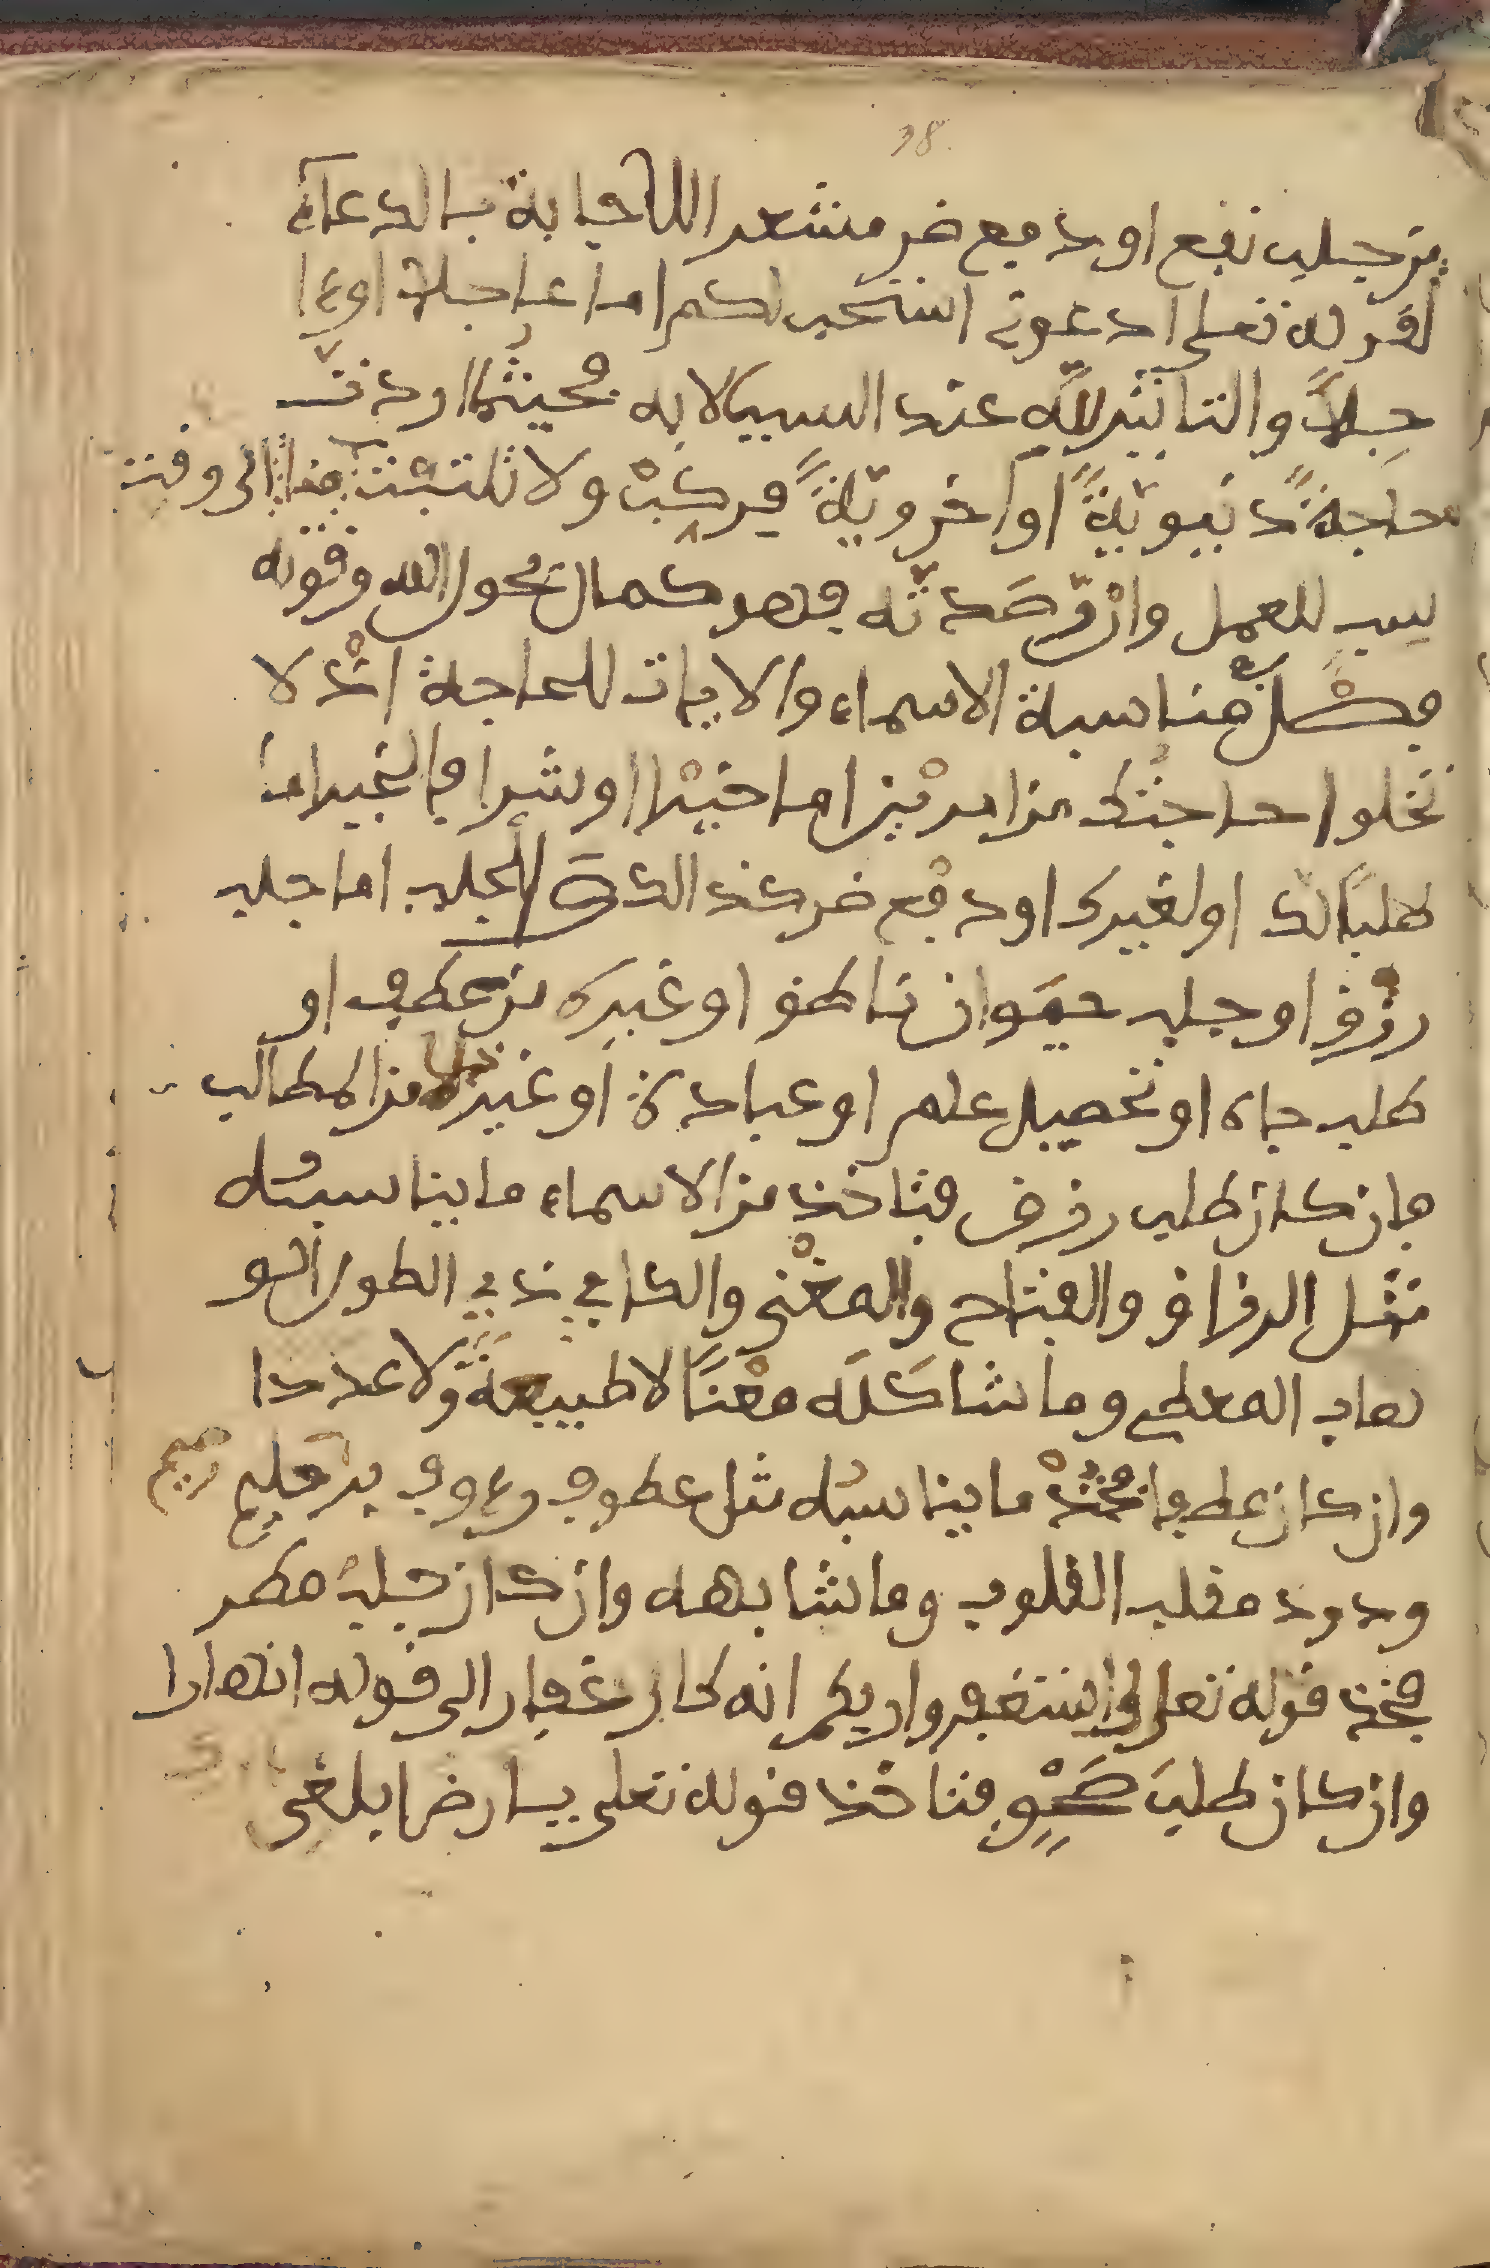 38
من جلب نفع او دفع ضر منشعر اللاجابة بالدعاء
لقوله تعلى ادعونى استجب لكم اما عاجلا او ءا
جلا والتاثير لله عند السبب لا به فحيثما اردت
حاجة دنيوية او اخروية فركب ولا تلتفت الى وقت
للعمل وان رصدته فهو كمال بحول الله وقوته
فصل مناسبة الاسماء والايات للحاجة اذ لا
تخلوا حاجتك من امرين اما خيرا او شرا فالخير اما
طلبا لك او لغيرك او دفع ضر كذالك فالجلب اما جلب
رزق او جلب حيوان ناطق او غيره من عطف او
طلب جاه او تحصيل علم او عبادة او غير ذلك من المطالب
فان كان طلب رزق فتاخذ من الاسماء ما يناسبه
مثل الرزاق والفتاح والمغنى والكافي ذي الطول الو
هاب المعطي وما شاكله معنا لا طبيعة ولا عددا
وان كان عطفا فخذ ما يناسبه مثل عطوف رءوف بر حليم رحيم
ودود مقلب القلوب وما شابهه وان كان جلب مطر
فخذ قوله تعلى استغفروا ربكم انه كان غفارا الى قوله انهارا
وان كان طلب صحو فتاخذ قوله تعلى يا ارض ابلعى